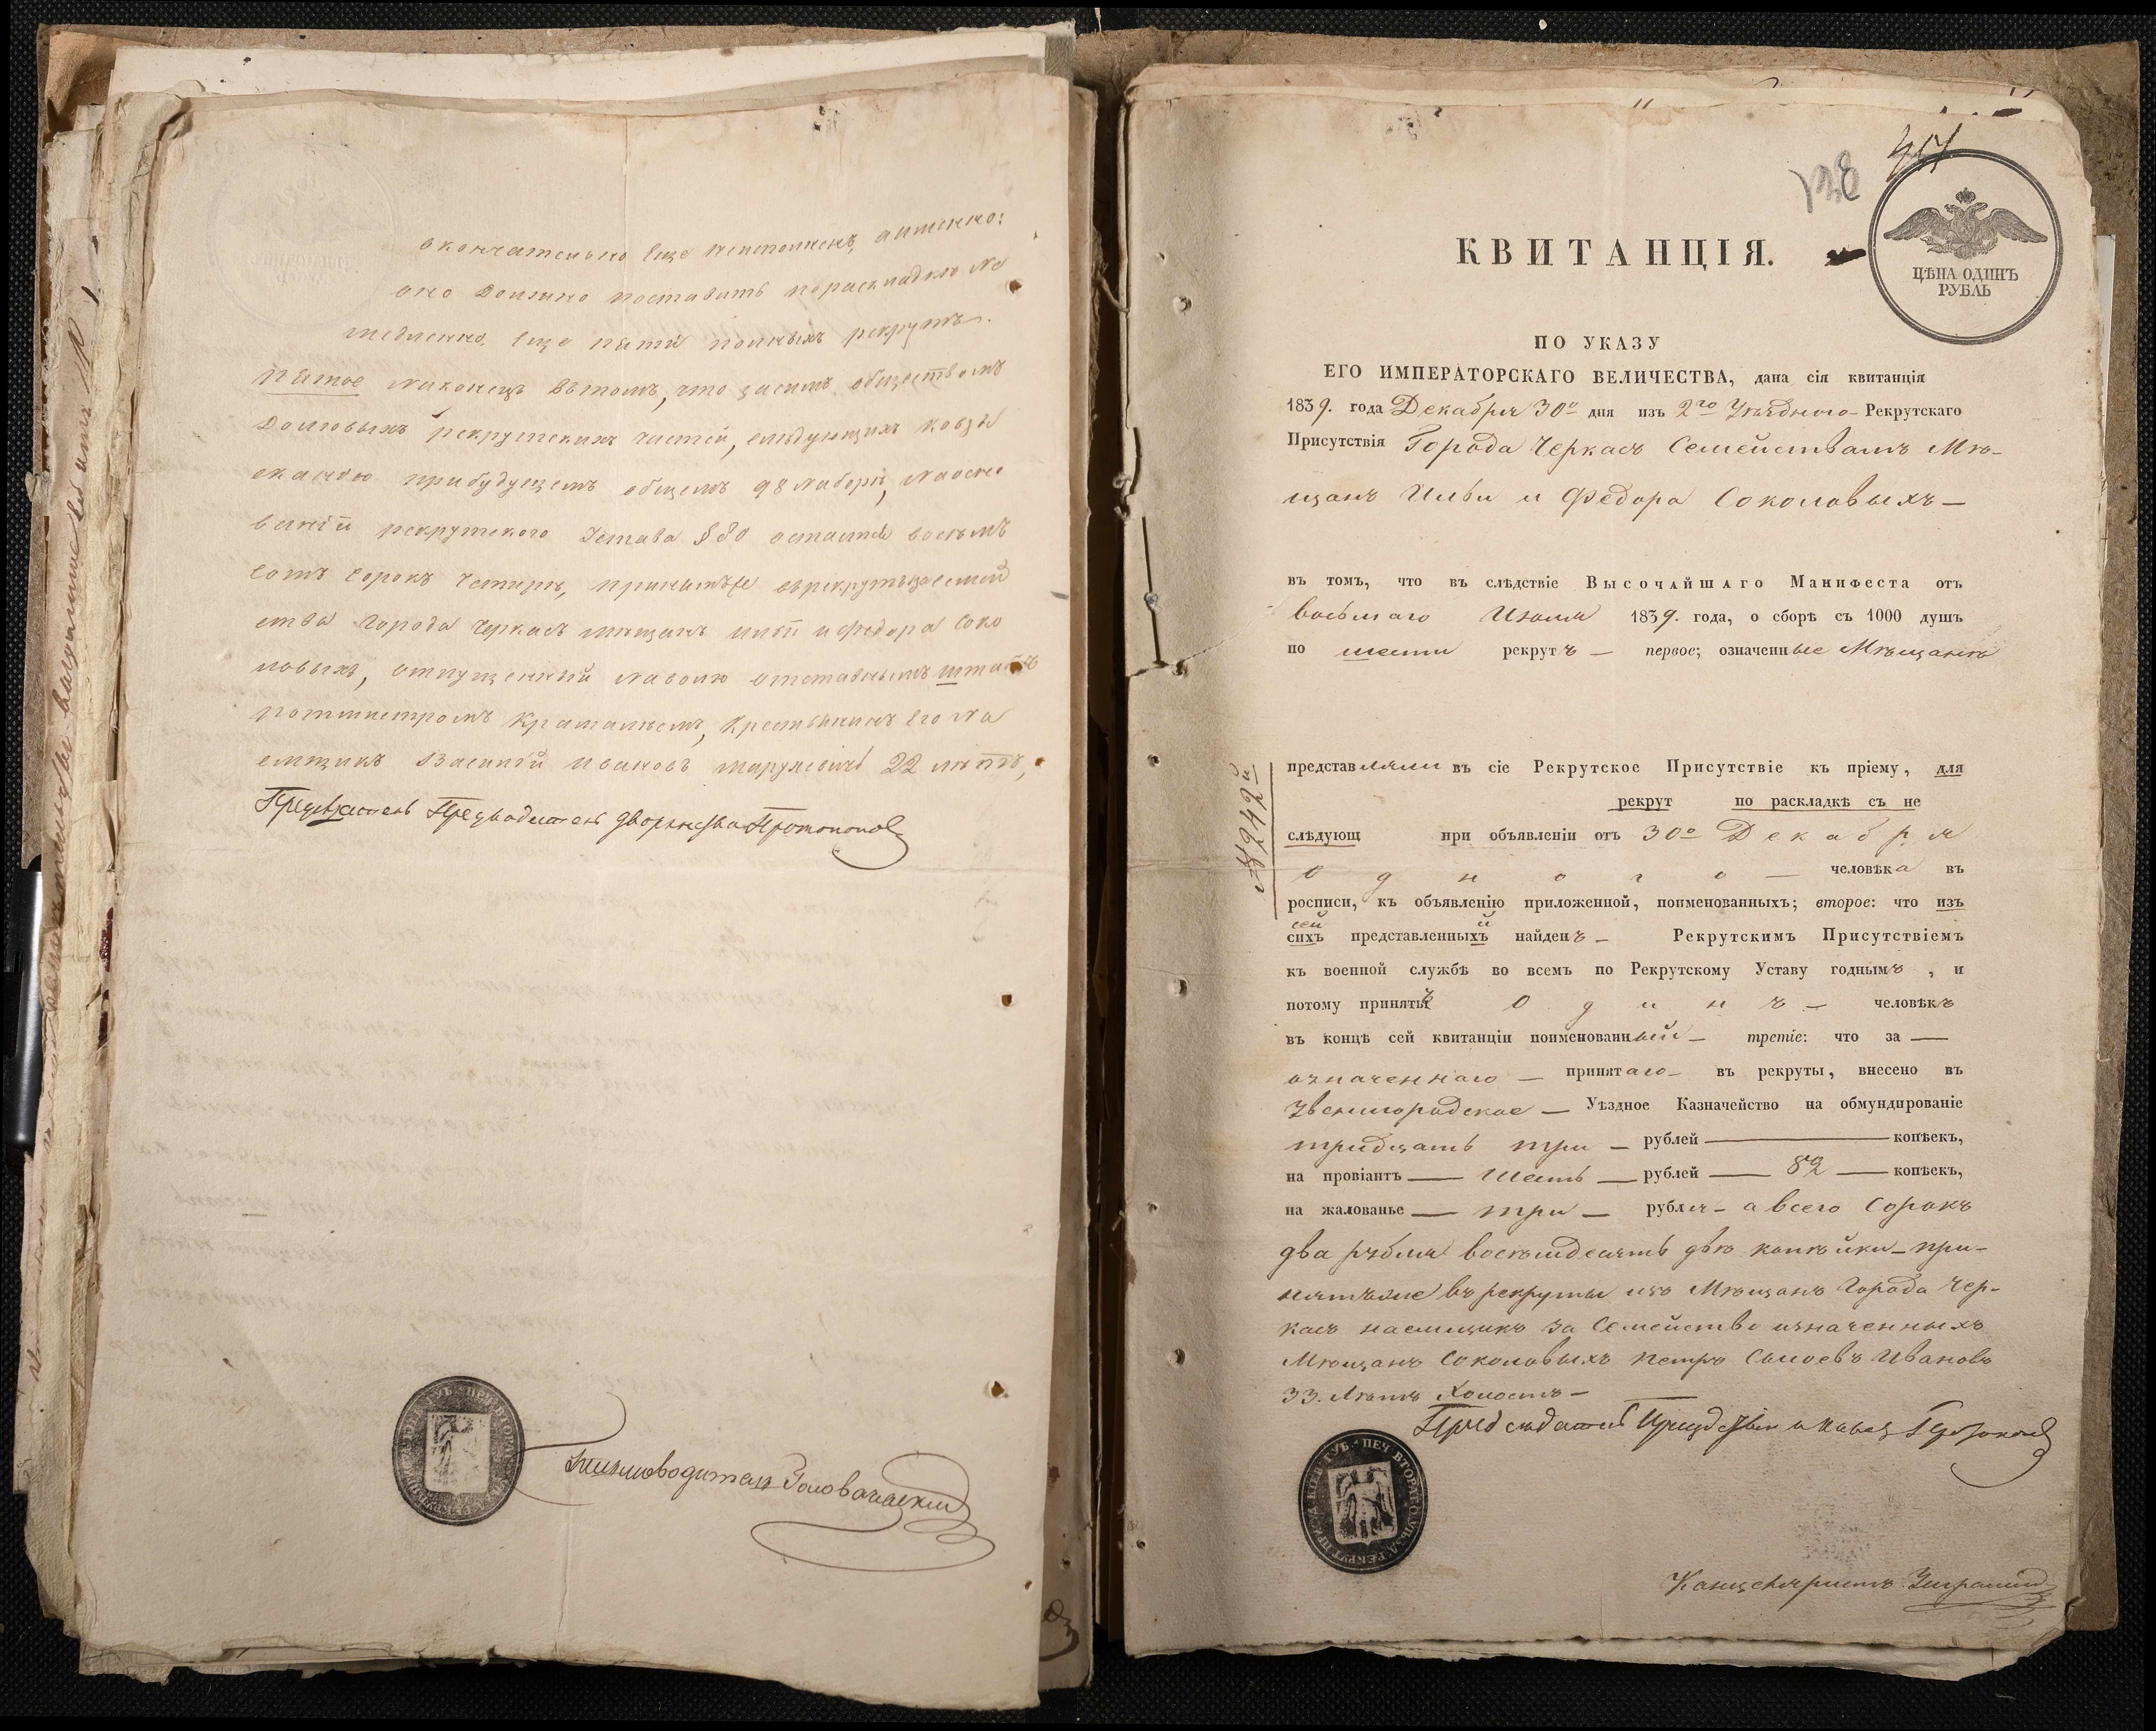 окончательно еще неисполненъ, аименно:
оно должно поставить пораскладкѣ не
медленно, еще пять полныхъ рекрутъ.
Пятое наконецъ вътомъ, что засимъ обществомъ
долговыхъ рекрутскихъ частей, слѣдующихъ ковзы
сканію прибудущемъ общемъ 98 наборѣ, наосно
ваніи рекрутского Устава § 80 остается восемъ
сотъ сорокъ четыре, принятъже врекрутызасемей
ства города Черкасъ мѣщанъ Ильи и Федора Соко
ловыхъ, отпущенный наволю отставнымъ штабъ
ротмистромъ, крестьянинъ его на
емщикъ Василій Ивановъ 22 лѣтъ,
Предсѣдатель Предводитель дворянства Протопоповъ
Письмоводитель
КВИТАНЦІЯ.
ЦѢНА ОДИНЪ
РУБЛЬ
ПО УКАЗУ
ЕГО ИМПЕРАТОРСКАГО ВЕЛИЧЕСТВА, дана сія квитанція
1839. года Декабря 30о дня изъ 2го Уѣзднаго Рекрутскаго
Присутствія Города Черкасъ Семействамъ Мѣ-
щанъ Ильи и Федора Соколовыхъ —
въ томъ, что въ слѣдствіе Высочайшаго Манифеста отъ
восьмаго Июля 1839. года, о сборѣ съ 1000 душъ
по шести рекрутъ — первое; означенные Мѣщане
представляли въ сіе Рекрутское Присутствіе къ пріему, для
рекрут по раскладкѣ съ не
слѣдующ при объявленіи отъ 30о Декабря
одного — человѣка въ
росписи, къ объявленію приложенной, поименованныхъ; второе: что изъ
сей й
сихъ представленныхъ найденъ — Рекрутскимъ Присутствіемъ
къ военной службѣ во всемъ по Рекрутскому Уставу годнымъ, и
потому принятъ одинъ — человѣкъ
въ концѣ сей квитанціи поименованный — третіе: что за —
означеннаго — принятаго — въ рекруты, внесено въ
Звенигородское — Уѣздное Казначейство на обмундированіе
тридцать три — рублей — копѣекъ,
на провіантъ — шесть — рублей — 82 — копѣекъ,
на жалованье — три — рубля — а всего сорокъ
два рубля восемдесятъ двѣ копѣйки — при-
нятъже въ рекруты изъ Мѣщанъ Города Чер-
касъ наемщикъ за Семейство означенныхъ
Мѣщанъ Соколовыхъ Петръ Ивановъ
33. Лѣтъ Холостъ —
Предсѣдатель
Канцеляристъ
№ 242й